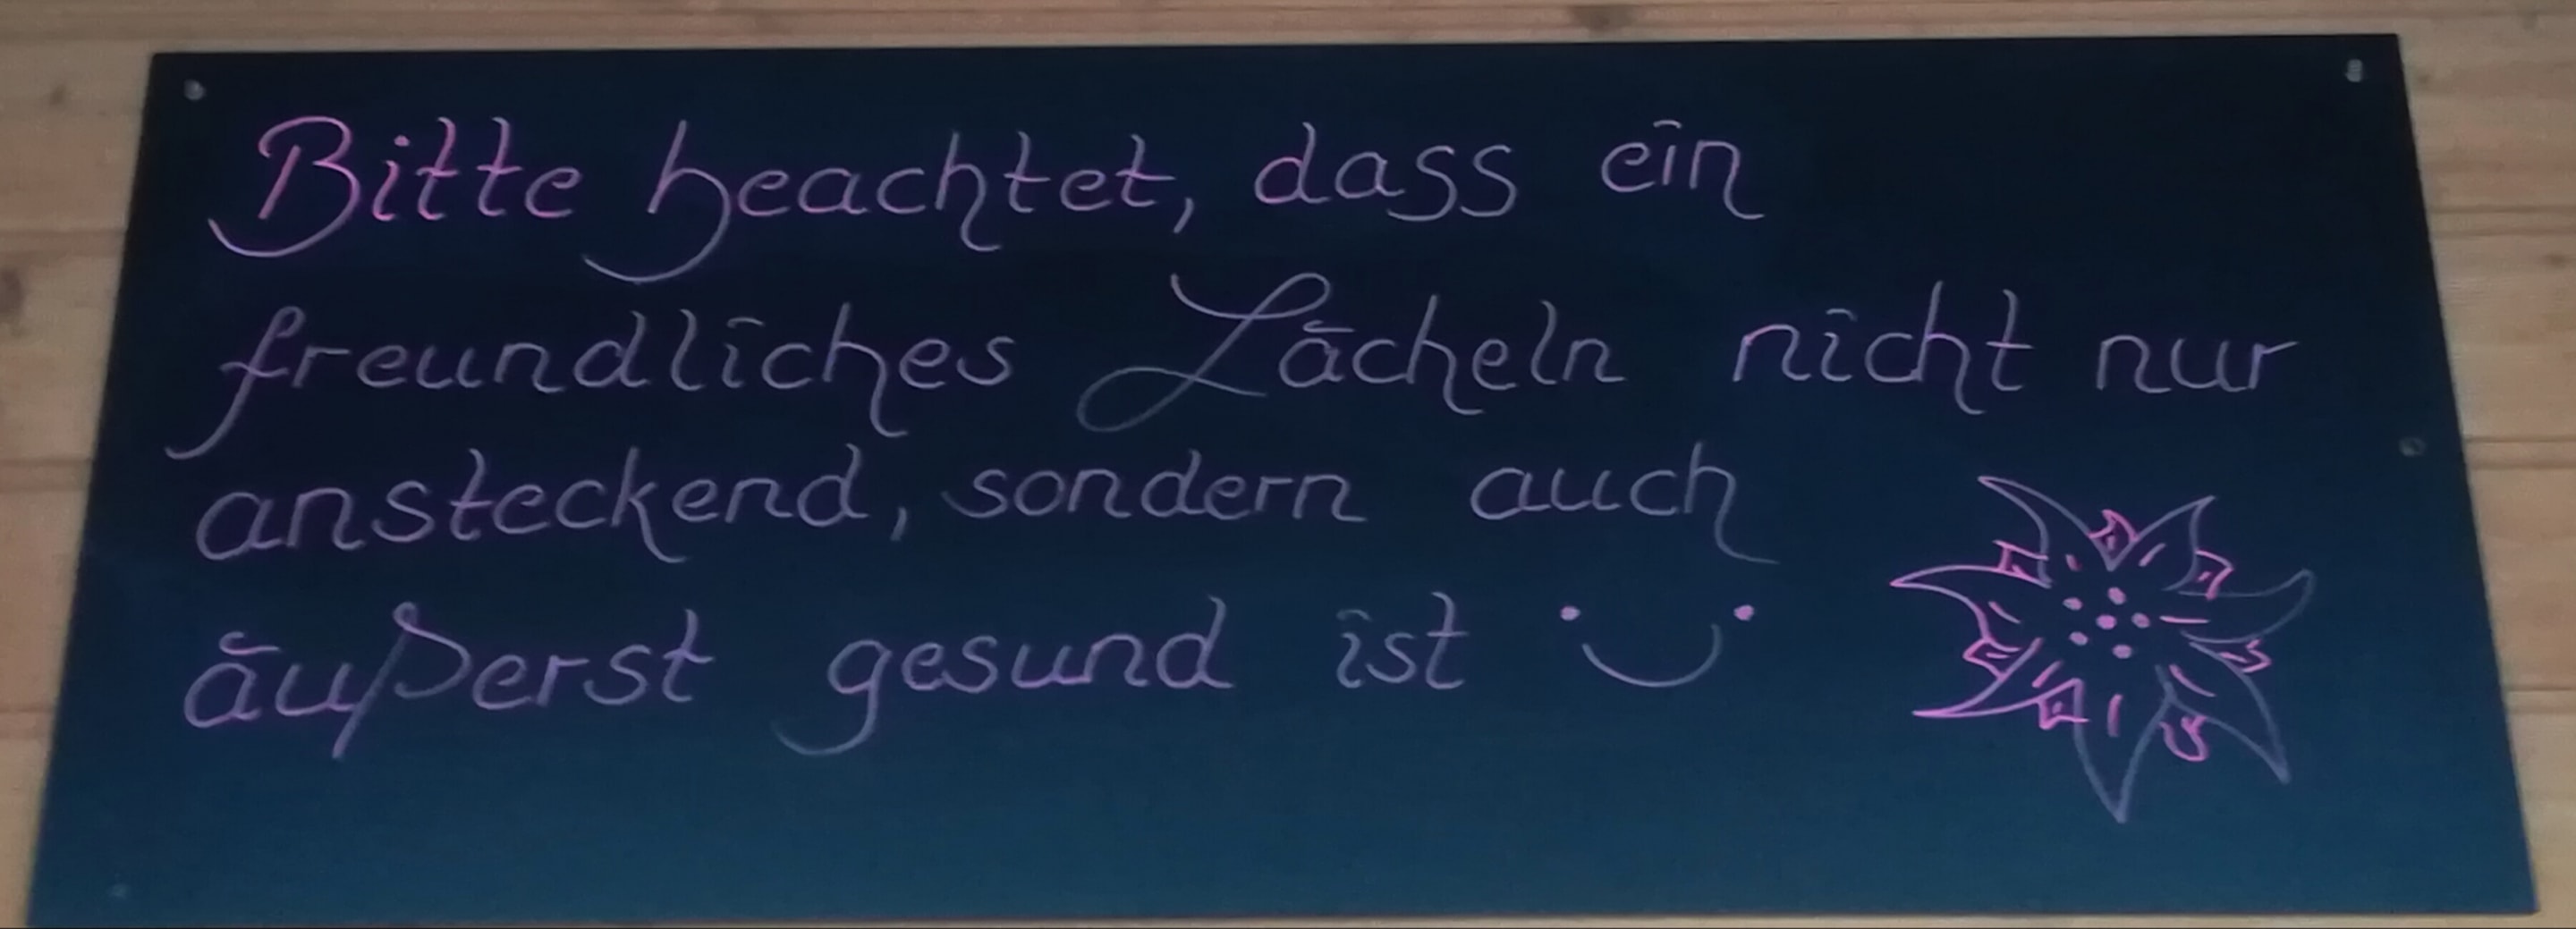 Bitte beachtet, dass ein
freundliches Lächeln nicht nur
ansteckend, sondern auch
äußerst gesund ist